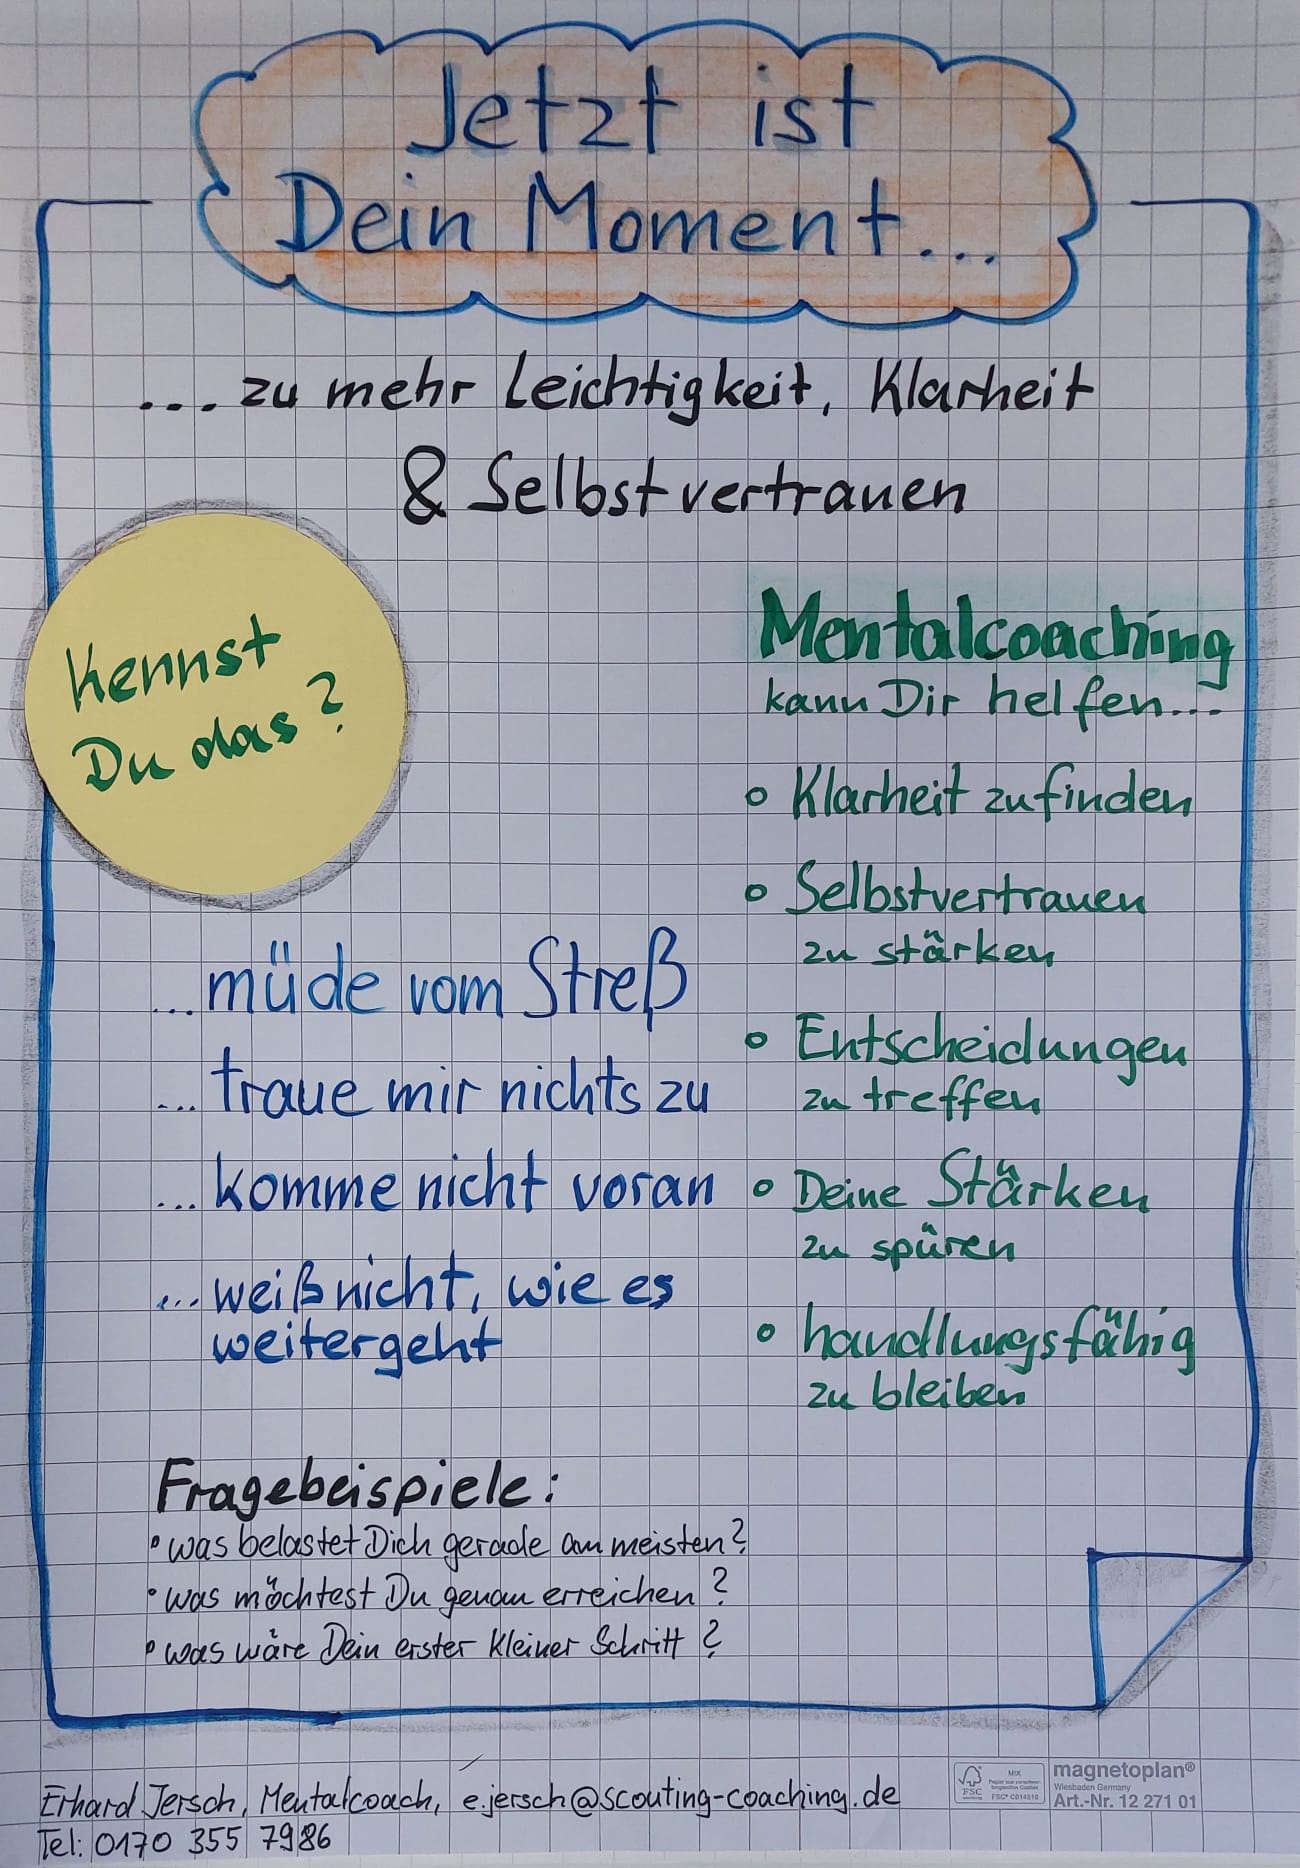 Jetzt ist
Dein Moment...
...zu mehr Leichtigkeit, Klarheit
& Selbstvertrauen
Kennst
Du das?
...müde vom Streß
...traue mir nichts zu
...komme nicht voran
...weiß nicht, wie es
weitergeht
Mentalcoaching
kann Dir helfen...
o Klarheit zu finden
o Selbstvertrauen
zu stärken
o Entscheidungen
zu treffen
o Deine Stärken
zu spüren
o handlungsfähig
zu bleiben
Fragebeispiele:
• was belastet Dich gerade am meisten?
• was möchtest Du genau erreichen?
• was wäre Dein erster kleiner Schritt?
Erhard Jersch, Mentalcoach, e.jersch@scouting-coaching.de
Tel: 0170 355 7986
FSC
MIX
FSC® C014510
magnetoplan®
Wiesbaden Germany
Art.-Nr. 12 271 01